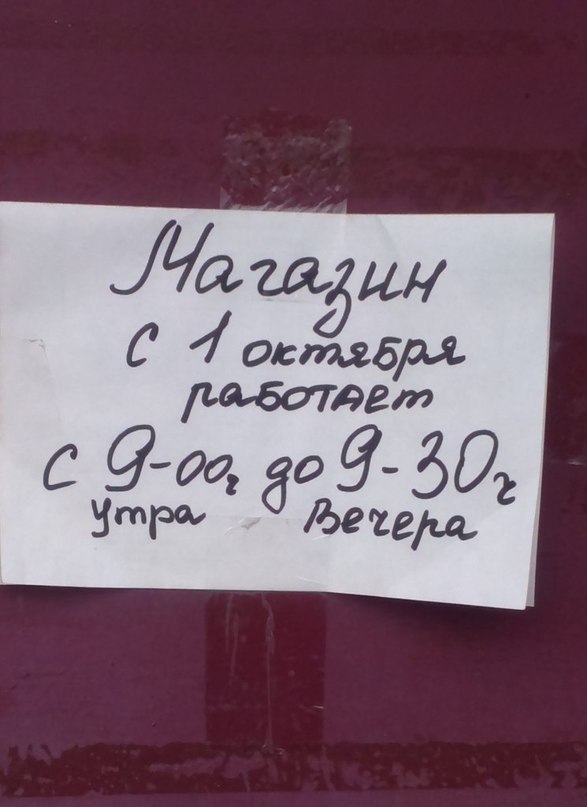 Магазин
с 1 октября
работает
с 9-00ч до 9-30ч
утра Вечера